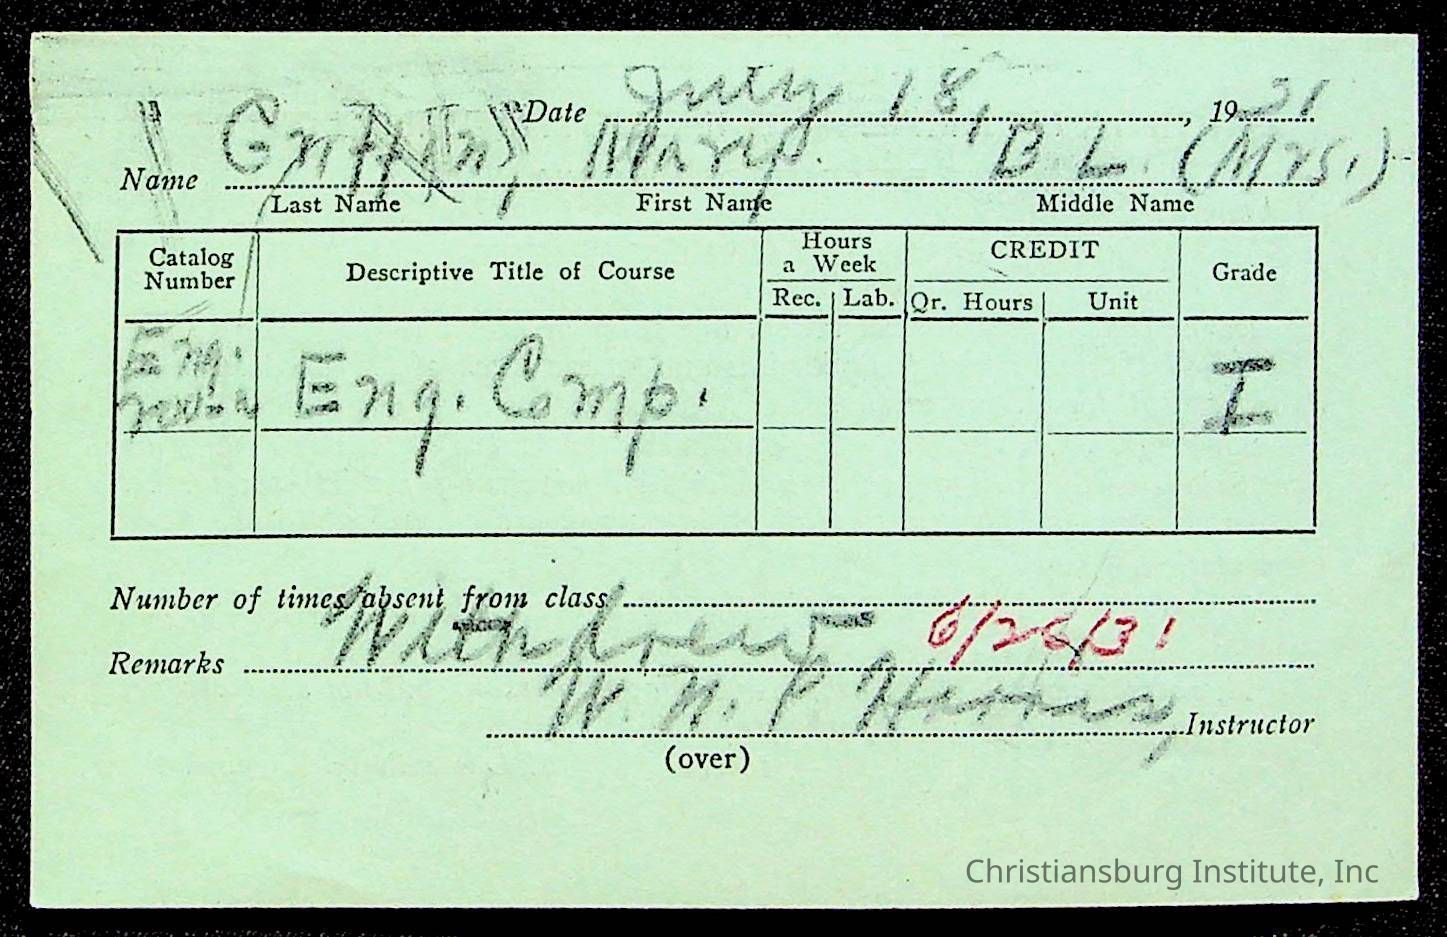 Date July 18, 1931
Name Griffin, Mary B. L. (Mrs.)
Last Name First Name Middle Name
Catalog Number Descriptive Title of Course Hours a Week CREDIT Grade
Rec. Lab. Qr. Hours Unit
Eng. Eng. Comp. I
Number of times absent from class
Remarks Withdrew 6/26/31
W. N. P. Harris Instructor
(over)
Christiansburg Institute, Inc